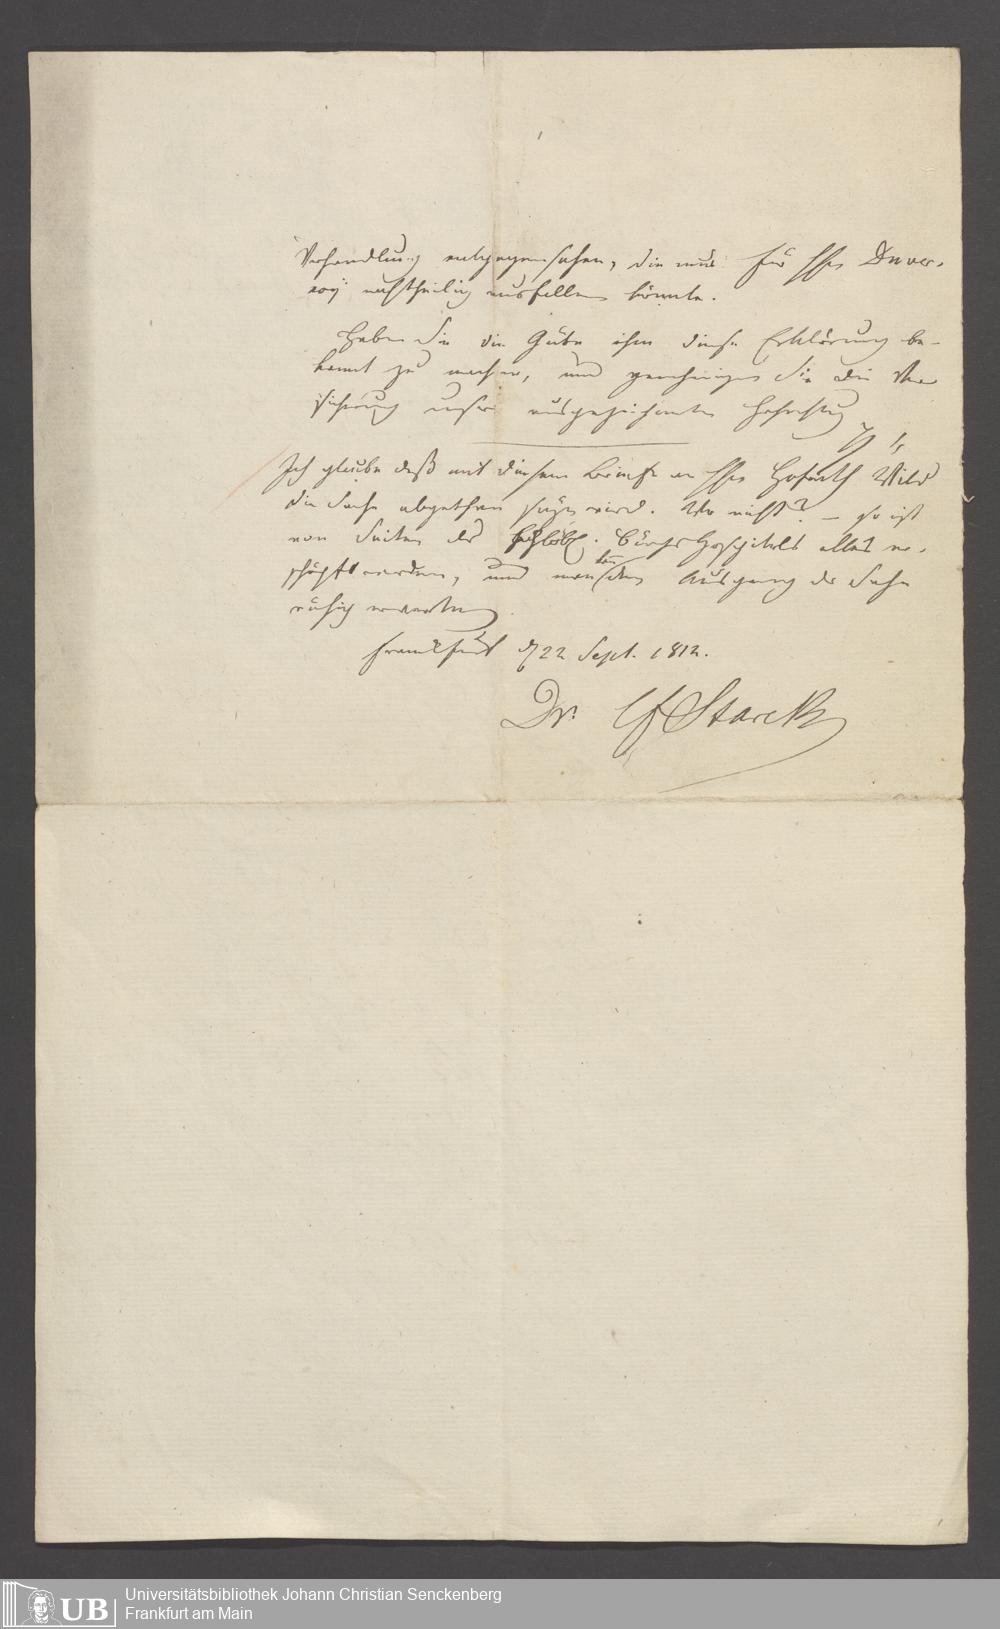 Verhandlung entgegensehen, die nur für Hrn Duver-
noy nachtheilig ausfallen könnte.
Haben Sie die Güte ihm diese Erklärung be-
kannt zu machen, und genehmigen Sie die Ver
sicherung unsrer ausgezeichneten Hochachtung
Ich glaube daß mit diesem Briefe an Hrn Hofrath Wild
die Sache abgethan seyn wird. Wo nicht? – so ist
von Seiten des hochlöbl. Bürger Hospitals alles er-
schöpft worden, und man kann den Ausgang der Sache
ruhig erwarten.
Frankfurt d 22 Sept. 1812.
Dr. Starck
UB
Universitätsbibliothek Johann Christian Senckenberg
Frankfurt am Main